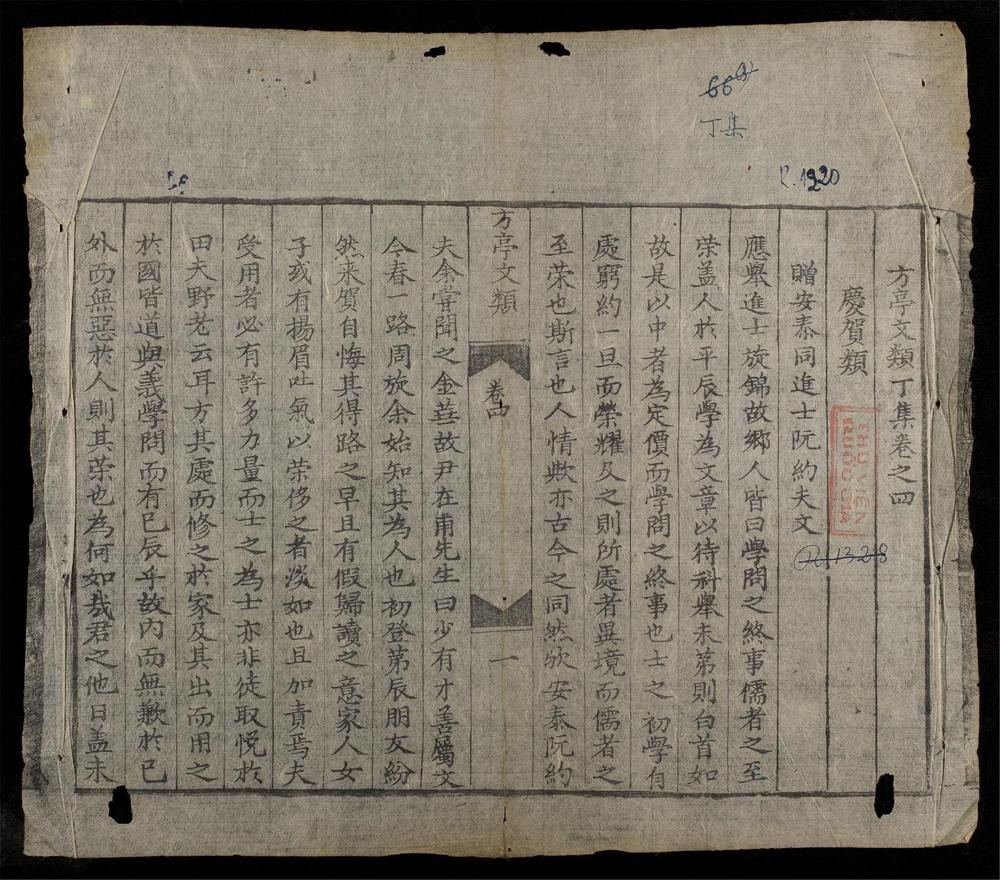 丁集
R.1920
方亭文類丁集卷之四
慶賀類
THU VIEN
QUOC GIA
贈安泰同進士阮約夫文
R.1328
應舉進士旋錦故鄉人皆曰學問之終事儒者之至
荣盖人於平辰學為文章以待科舉未第則白首如
故是以中者為定價而學問之終事也士之初學自
處窮約一旦而榮耀及之則所處者異境而儒者之
至荣也斯言也人情歟亦古今之同然欤安泰阮約
方亭文類
卷四
一
夫余嘗聞之金蓮故尹在甫先生曰少有才善屬文
今春一路周旋余始知其為人也初登第辰朋友紛
然来賀自悔其得路之早且有假歸讀之意家人女
子或有揚眉吐氣以荣侈之者淡如也且加責焉夫
受用者必有許多力量而士之為士亦非徒取悦於
田夫野老云耳方其處而修之於家及其出而用之
於國皆道與義學問而有已辰乎故内而無歉於已
外而無惡於人則其荣也為何如哉君之他日盖未